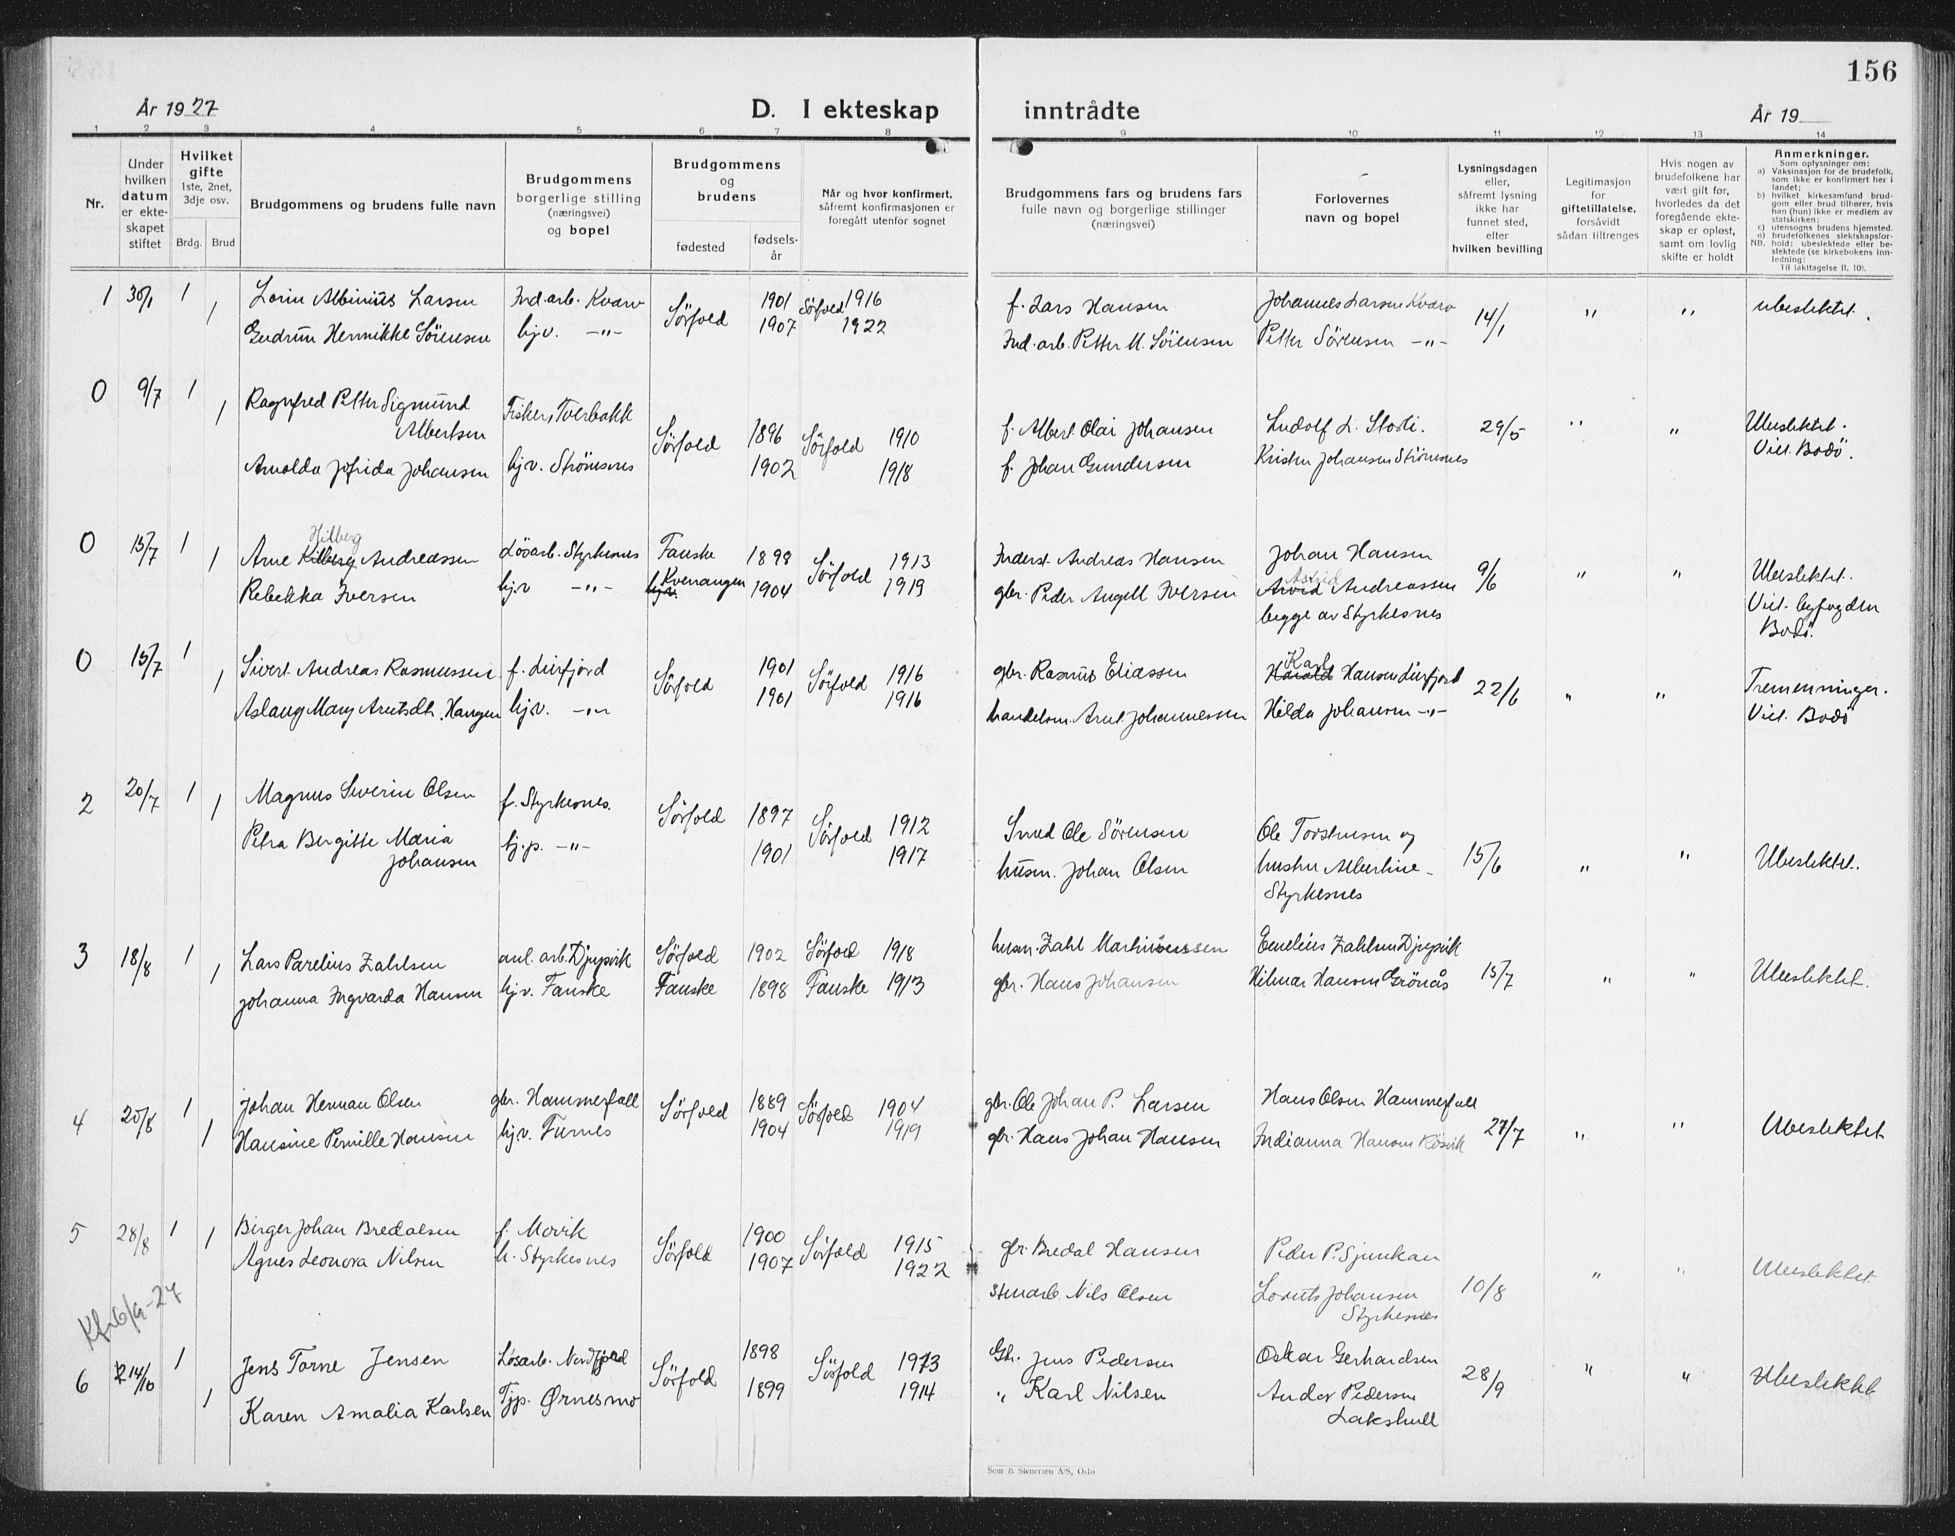 156
År 1927
D. I ekteskap inntrådte
År 19
1 2 3 4 5 6 7 8 9 10 11 12 13 14
Nr.
Under hvilken datum er ekteskapet stiftet
Hvilket gifte 1ste, 2net, 3dje osv.
Brdg. Brud
Brudgommens og brudens fulle navn
Brudgommens borgerlige stilling (næringsvei) og bopel
Brudgommens og brudens
fødested
fødselsår
Når og hvor konfirmert, såfremt konfirmasjonen er foregått utenfor sognet
Brudgommens fars og brudens fars fulle navn og borgerlige stillinger (næringsvei)
Forlovernes navn og bopel
Lysningsdagen eller, såfremt lysning ikke har funnet sted, efter hvilken bevilling
Legitimasjon for giftetillatelse, forsåvidt sådan tiltrenges
Hvis nogen av brudefolkene har vært gift før, hvorledes da det foregående ekteskap er opløst, samt om lovlig skifte er holdt
Anmerkninger.
Som oplysninger om:
a) Vaksinasjon for de brudefolk, som ikke er konfirmert her i landet;
b) hvilket kirkesamfund brudgom eller brud tilhører, hvis han (hun) ikke er medlem av statskirken;
c) utensogns brudens hjemsted.
d) brudefolkenes slektskapsforhold: ubeslektede eller beslektede (se kirkebokens innledning:
NB.
Til iakttagelse II. 10).
1 30/1 1 Lorin Albinius Larsen Ind. arb. Kvarv Sørfold 1901 Sørfold 1916 f. Lars Hansen Johannes Larsen Kvarv 14/1 " " ubeslektet.
1 Gudrun Henrikke Sörensen hjv. -"- 1907 1922 Ind. arb. Petter M. Sörensen Petter Sörensen -"-
0 9/7 1 Ragnfred Petter Sigmund Albertsen Fisker, Tverbakk Sørfold 1896 Sørfold 1910 f. Albert Olai Johansen Ludolf L. Storli. 29/5 " " Ubeslektet. Viet. Bodø.
1 Arnolda Jofrida Johansen hjv. Strömsnes 1902 1918 f. Johan Gundersen Kristen Johansen Strömsnes
0 15/7 1 Arne Kilberg Hilberg Andreassen Løsarb. Styrkesnes Fauske 1898 Sørfold 1913 Inderst. Andreas Hansen Johan Hansen 9/6 " " Ubeslektet. Viet. byfogden Bodø.
1 Rebekka Iversen hjv -"- hjv. Kvenangen 1904 1919 gbr. Peder Angell Iversen Arvid Astrid Andreassen
begge av Styrkesnes
0 15/7 1 Sivert Andreas Rasmussen f. Leirfjord Sørfold 1901 Sørfold 1916 gbr. Rasmus Eliassen Harald Karl Hansen Leirfjord 22/6 " " Tremenninger. Viet. Bodø
1 Aslaug Mary Arntsdt. Hangen hjv. -"- 1901 1916 handelsm. Arnt Johannessen Hilda Johansen -"-
2 20/7 1 Magnus Severin Olsen f. Styrkesnes. Sørfold 1897 Sørfold 1912 Smed Ole Sörensen Ole Torstensen og 15/6 " " Ubeslektet.
1 Petra Bergitte Maria Johansen tj.p. -"- 1901 1917 husm. Johan Olsen hustru Albertine - Styrkesnes
3 18/8 1 Lars Parelius Zahlsen anl. arb. Djupvik Sørfold 1902 Sørfold 1918 husm. Zahl Martinussen Emelius Zahlsen Djupvik 15/7 " " Ubeslektet.
1 Johanna Ingvarda Hansen hjv. Fauske Fauske 1898 Fauske 1913 gbr. Hans Johansen Hilmar Hansen Grönås
4 20/8 1 Johan Herman Olsen gbr. Hammerfall Sørfold 1889 Sørfold 1904 gbr. Ole Johan P. Larsen Hans Olsen Hammerfall 27/7 " " Ubeslektet
1 Hansine Pernille Hansen hjv. Furnes 1904 1919 gbr. Hans Johan Hansen Indianna Hansen Røsvik
5 28/8 1 Birger Johan Bredalsen f. Movik Sørfold 1900 Sørfold 1915 gbr. Bredal Hansen Peder P. Sjunkan 10/8 " " Ubeslektet
1 Agnes Leonora Nilsen h. Styrkesnes 1907 1922 Stenarb. Nils Olsen Lorents Johansen Styrkesnes
Kfr 6/9-27
6 14/10 1 Jens Torne Jensen Løsarb. Nordfjord Sørfold 1898 Sørfold 1913 Gbr. Jens Pedersen Oskar Gerhardsen 28/9 " " Ubeslektet
1 Karen Amalia Karlsen Tjp. Ørnesmo 1899 1914 " Karl Nilsen Ander Pedersen Lakshull
Sem & Stenersen A/S, Oslo